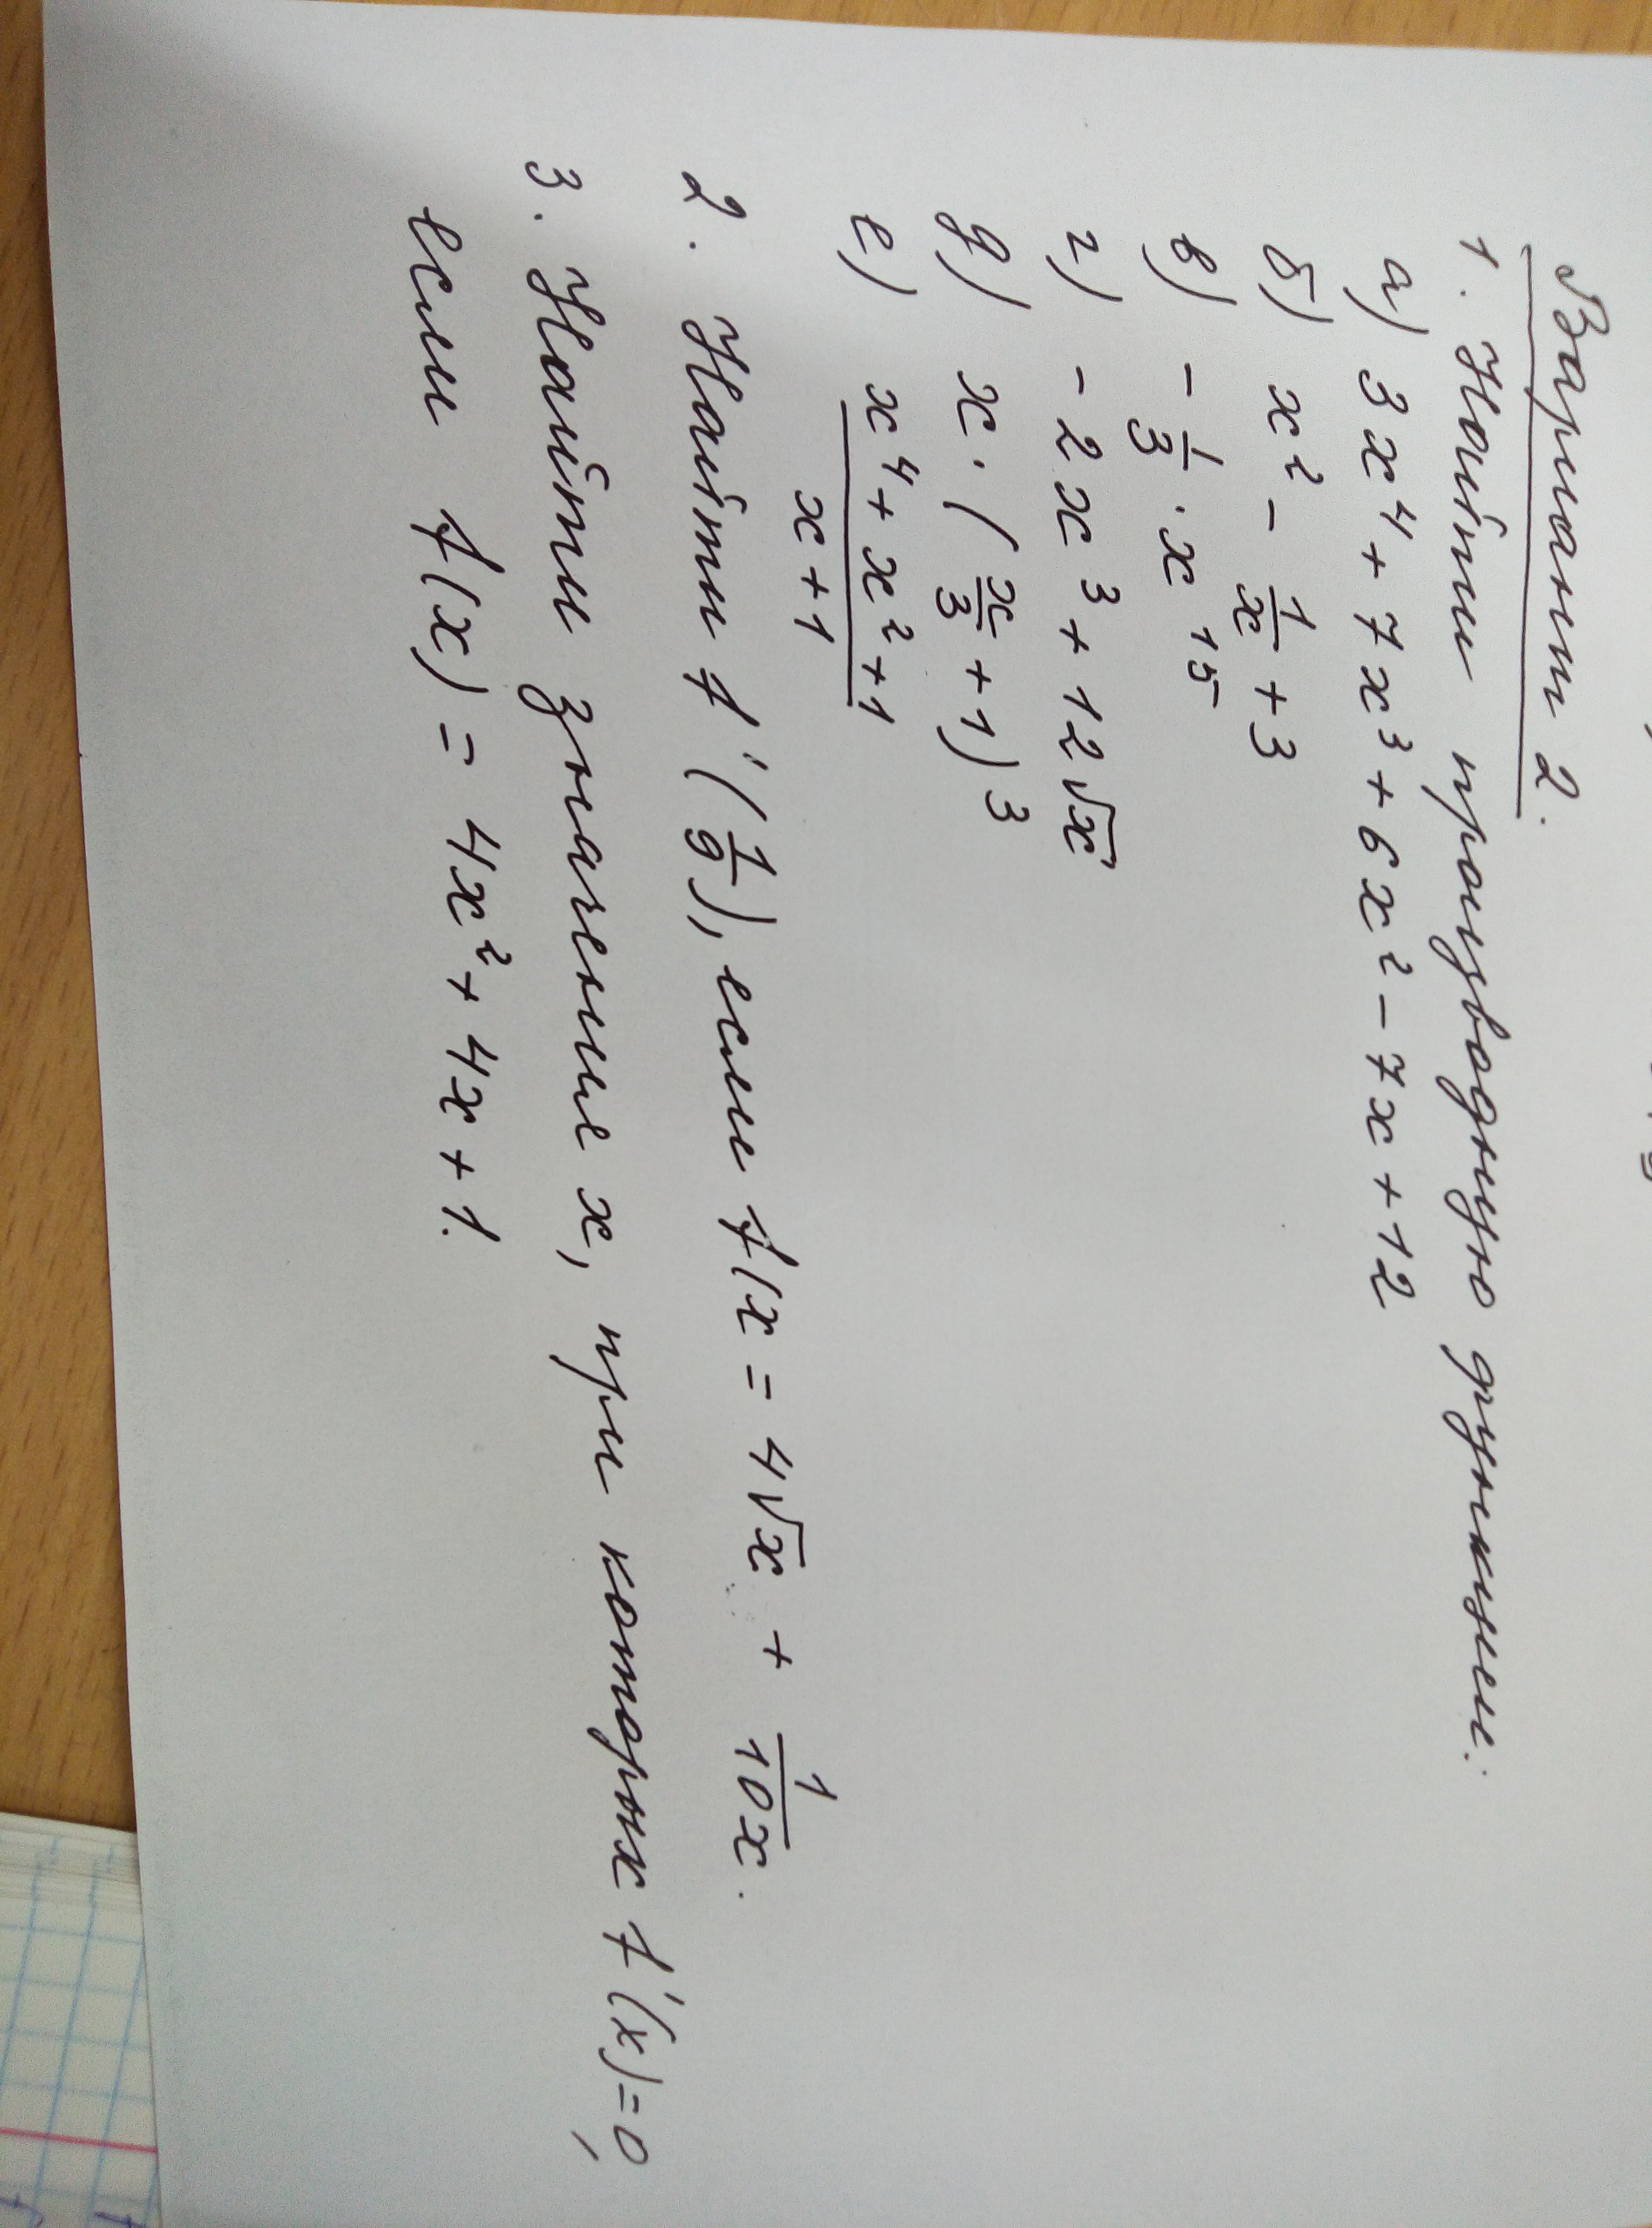 Вариант 2.
1. Найти производную функции:
а) 3x⁴ + 7x³ + 6x² - 7x + 12
б) x² - 1/x + 3
в) - 1/3 · x¹⁵
г) - 2x³ + 12√x
д) x · (x/3 + 1)³
е) (x⁴ + x² + 1)/(x + 1)
2. Найти f'(1/9), если f(x = 4√x + 1/(10x).
3. Найти значения x, при которых f'(x) = 0,
если f(x) = 4x² + 4x + 1.